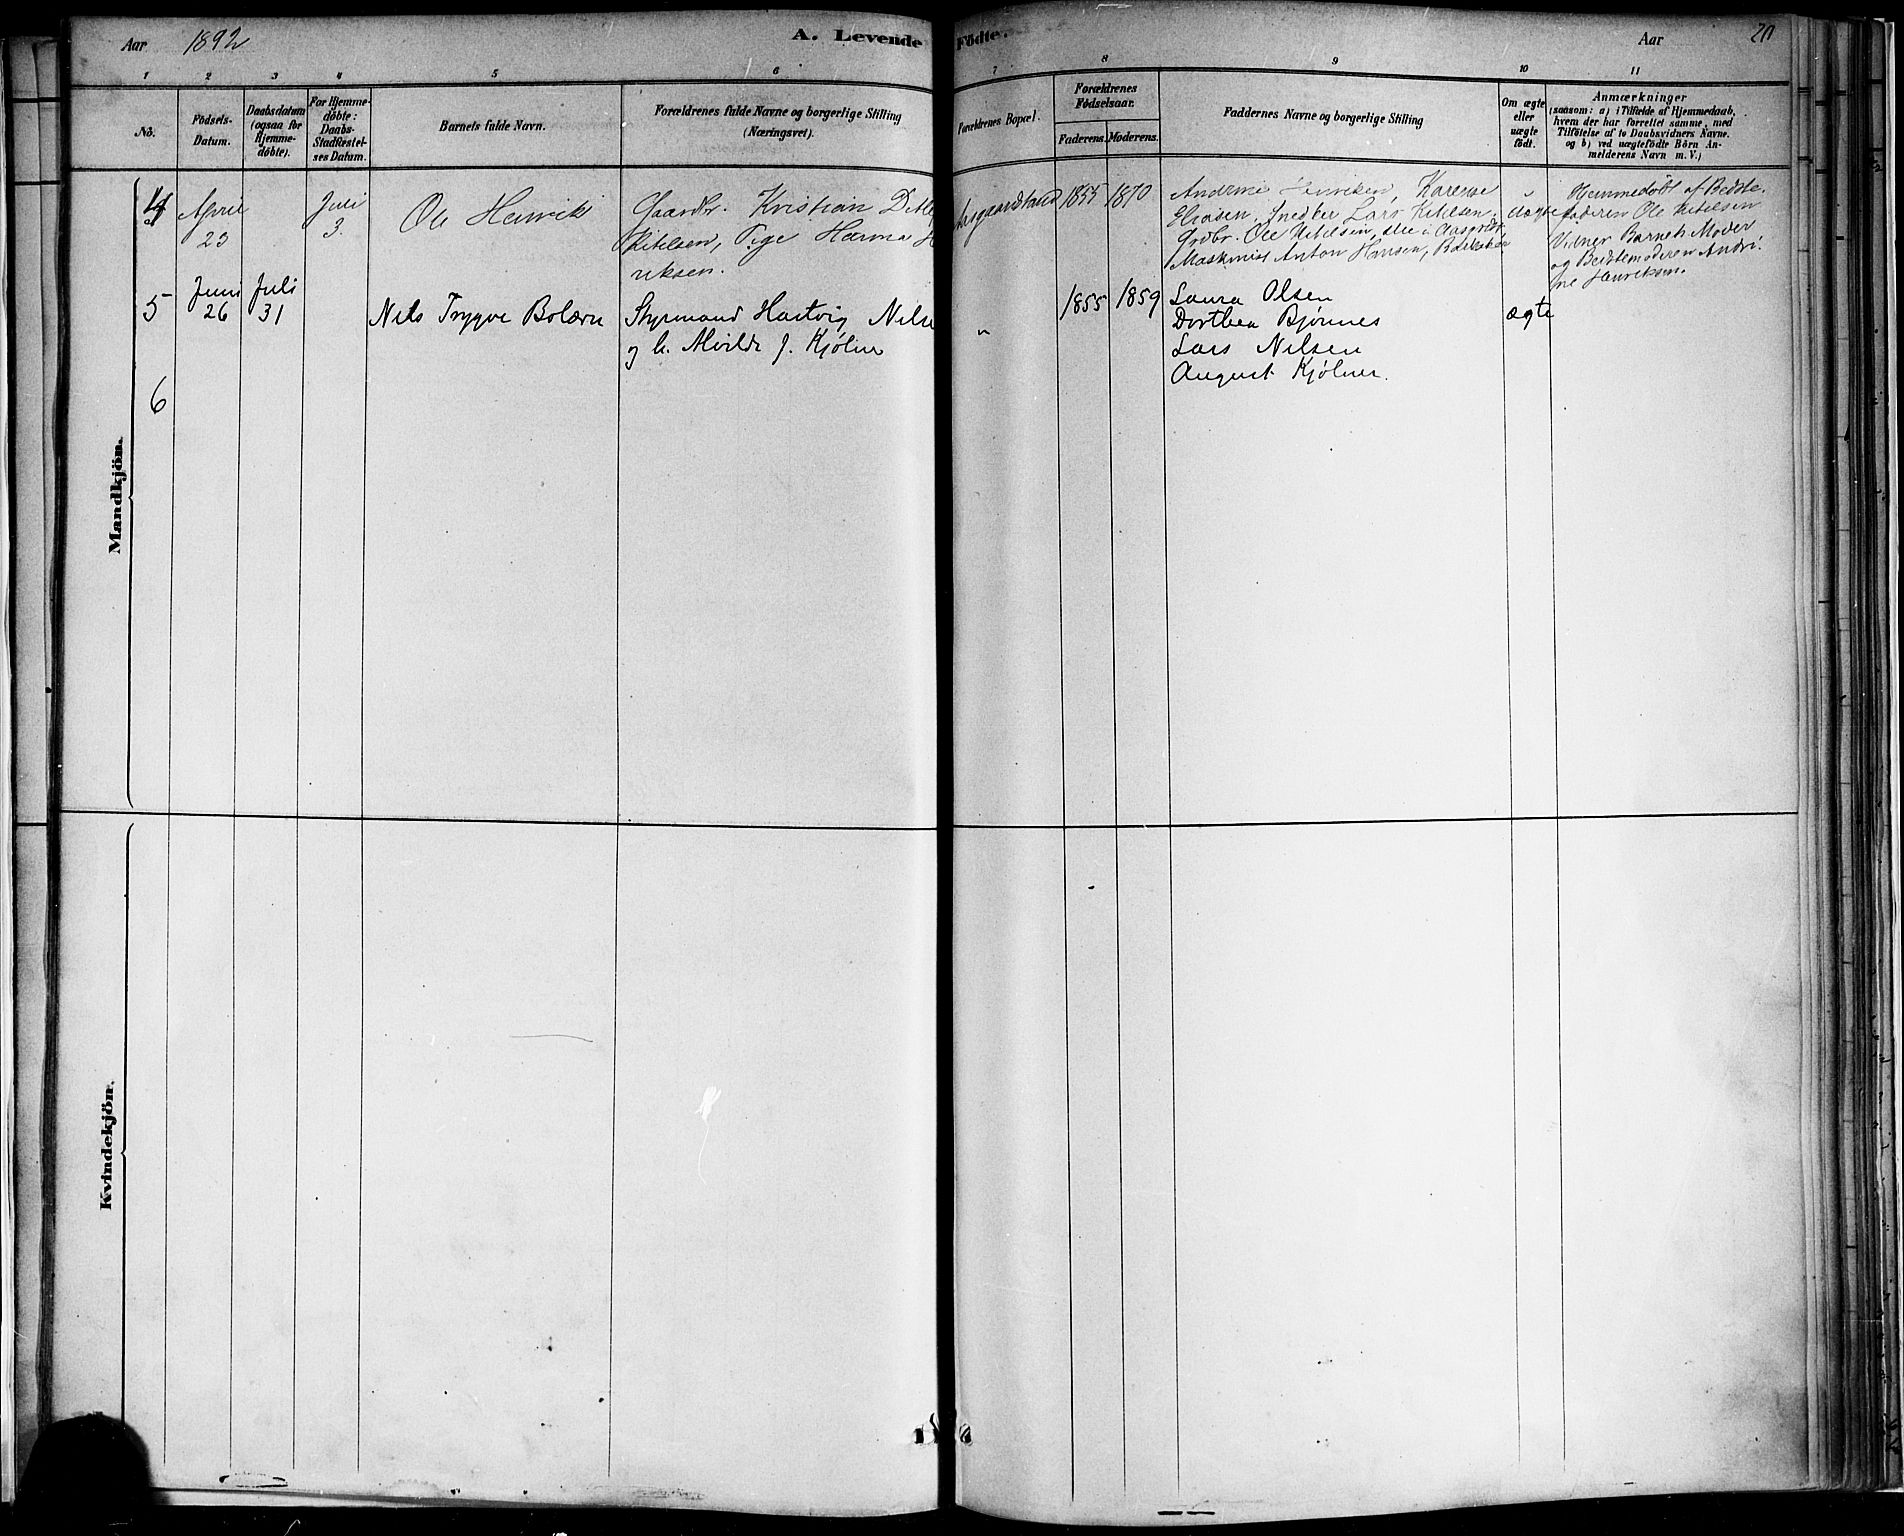 Aar 1892 A. Levende Fødte. Aar 20
1 2 3 4 5 6 7 8 9 10 11
No.
Fødsels-
Datum.
Daabsdatum
(ogsaa for
Hjemme-
døbte).
For Hjemme-
døbte:
Daabs-
Stadfæstel-
ses Datum.
Barnets fulde Navn.
Forældrenes fulde Navne og borgerlige Stilling
(Næringsvei).
Forældrenes Bopæl.
Forældrenes
Fødselsaar.
Faderens. Moderens.
Faddernes Navne og borgerlige Stilling
Om ægte
eller
uægte
født.
Anmærkninger
(saasom: a) i Tilfælde af Hjemmedaab,
hvem der har forrettet samme, med
Tilføielse af to Daabsvidners Navne.
og b) ved uægtefødte Børn An-
melderens Navn m. V.)
Mandkjön.
4
April
23
Juli
3.
Ole Henrik
Gaardbr. Kristian
Kitelsen, Pige Harma H
riksen.
aardstrand
1855 1870
Andrine Karense
Eliasen, Snedker Lars Kitilsen,
Grdbr. Ole Kitilsen,
Maskinist Anton Hansen,
u
ægte
Hjemmedøbt af Bedste-
faderen Ole Kitelsen
Vidner Barnets Moder
og Bedstemoderen Andri-
ne Henriksen.
5
Juni
26
Juli
31
Nils Trygve Bolærn
Styrmand Hartvig Nils
og h. Alvilde f. Kjølner
"
1855 1859
Laura Olsen
Dorthea Bjønnes
Lars Nilsen
August Kjølner.
ægte
6
Kvindekjön.